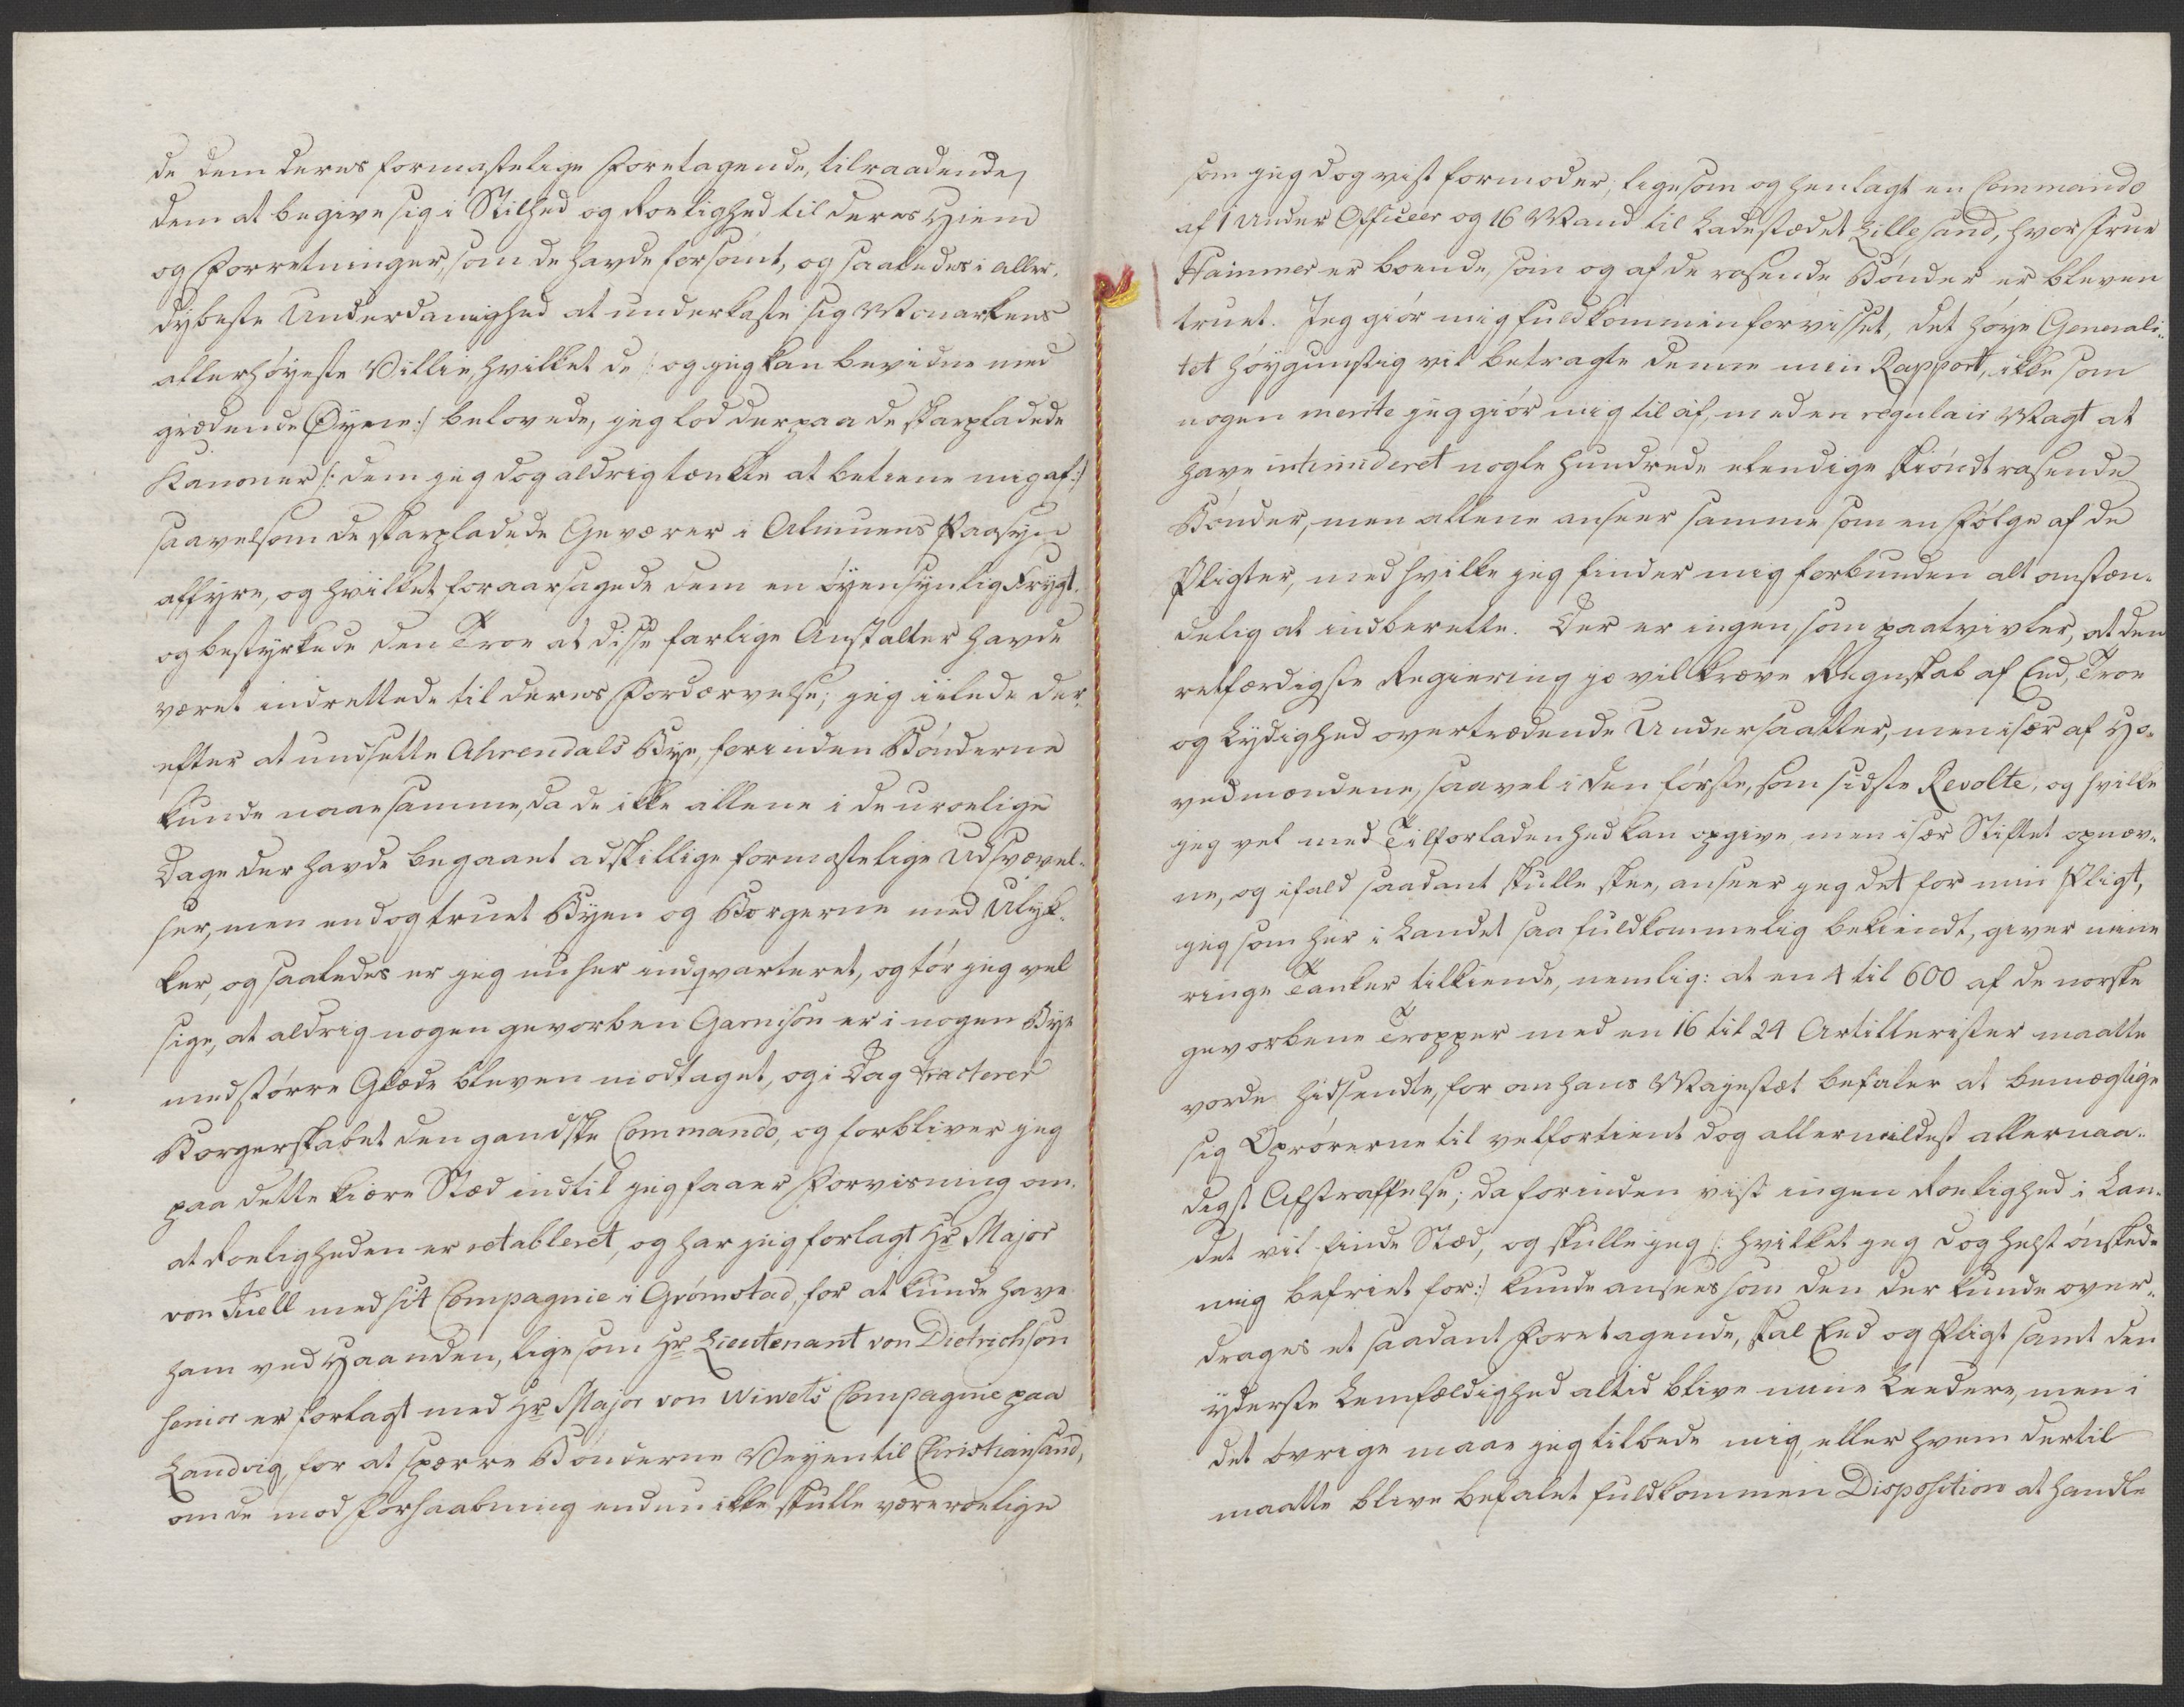 de dem deres formastelige Foretagende, tilraadende,
dem at begive sig i Stilhed og Roelighed til deres Hiem
og Forretninger, som de havde forsømt, og saaledes i aller-
dybeste Underdanighed at underkaste sig Monarkens
allerhøyeste Villie, hvilket de /: og jeg kan bevidne med
grædende Øyne :/ belovede, jeg lod derpaa de skarpladede
Kanoner /: dem jeg dog aldrig tænkte at betiene mig af :/
saavelsom de skarpladede Geværer i Almuens Paasyn
affyre, og hvilket foraarsagede dem en øyensynlig Frygt,
og bestyrkede den Troe at disse farlige Anstalter havde
været indrettede til deres Fordærvelse; jeg iilede der-
efter at undsette Ahrendals Bye, forinden Bønderne
kunde naae samme, da de ikke allene i de uroelige
Dage der havde begaaet adskillige formastelige Udsvævel-
ser, men endog truet Byen og Borgerne med Ulyk-
ker, og saaledes er jeg nu her indqvarteret, og tør jeg vel
sige, at aldrig nogen gevorben Garnison er i nogen Bye
med større Glæde bleven modtaget, og i Dag tracterer
Borgerskabet den gandske Commando, og forbliver jeg
paa dette kiære Stæd indtil jeg faaer Forvisning om,
at Roeligheden er retableret, og har jeg forlagt Hr Major
von Fuell med sit Compagnie i Grømstad, for at kunde have
ham ved Haanden, ligesom Hr Lieutenant von Dietrichson
senior er forlagt med Hr Major von Wiwets Compagnie paa
Landvig, for at spærre Bønderne Veyen til Christiansand,
om de mod Forhaabning endnu ikke skulle være roelige
som jeg dog vist formoder, ligesom og henlagt en Commando
af 1 Under Officeer og 16 Mand til Ladestædet Lillesand, hvor Frue
Hammer er boende, som og af de rasende Bønder er bleven
truet. Jeg giør mig fuldkommen forvisset, det høye Generali-
tet høygunstig vil betragte denne min Rapport, ikke som
nogen merite jeg giør mig til af, med en regulair Magt at
have intimideret nogle hundrede elendige skiøndt rasende
Bønder, men allene anseer samme som en Følge af de
Pligter, med hvilke jeg finder mig forbunden alt omstæn-
delig at indberette. Der er ingen, som paatvivler, at den
retfærdigste Regiering jo vil kræve Regnskab af Eed, Troe
og Lydighed overtrædende Undersaatter, men især af Ho-
vedmændene, saavel i den første, som sidste Revolte, og hvilke
jeg vel med Tilforladenhed kan opgive men især Stiftet opnæv-
ne, og ifald saadant skulle skee, anseer jeg det for min Pligt,
jeg som her i Landet saa fuldkommelig bekiendt, giver mine
ringe Tanker tilkiende, nemlig: at en 4 til 600 af de norske
gevorbene Tropper med en 16 til 24 Artillerister maatte
vorde hidsendte, for om hans Majestæt befaler at bemægtige
sig Oprørerne til velfortient dog allermildest allernaa-
digst Afstraffelse; da forinden vist ingen Roelighed i Lan-
det vil finde Stæd, og skulle jeg /: hvilket jeg dog helst ønskede
mig befriet for :/ kunde ansees som den der kunde over-
drages et saadant Foretagende, skal Eed og Pligt samt den
yderste Lemfældighed altid blive mine Leedere, men i
det øvrige maae jeg tilbede mig, eller hvem dertil
maatte blive befalet fuldkommen Disposition at handle